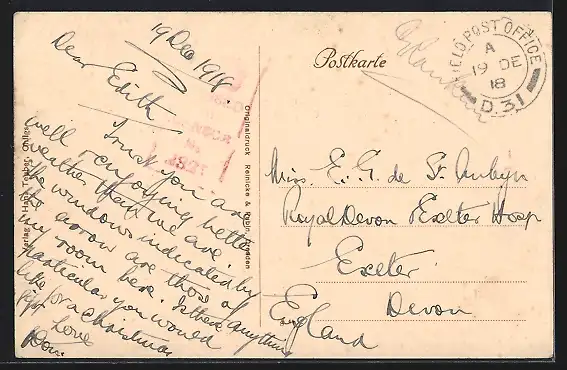 19 Dec 1918.
Dear Edith
Trust you are
well & enjoying better
weather than we are.
The windows indicated by
the arrow are those of
my room here. Is there anything
particular you would
like for a Christmas
gift
Love
Postkarte
FIELD POST OFFICE
A
19 DE
18
D.31
Miss. E. G. de St. Aubyn
Royal Devon & Exeter Hosp
Exeter
Devon
England
Originaldruck Reinicke & Rubin, Dresden
Verlag v. Hans Treuber,